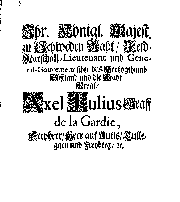 Ihr. Königl. Majest.
zu Schweden Raht / Feld-
Marschall-Lieutenant und Gene-
ral-Gouverneur über das Hertzogthumb
und die Stadt
Axel Julius Graff
de la Gardie,
Freyherr / Herr auf
und Freyberg / etc.